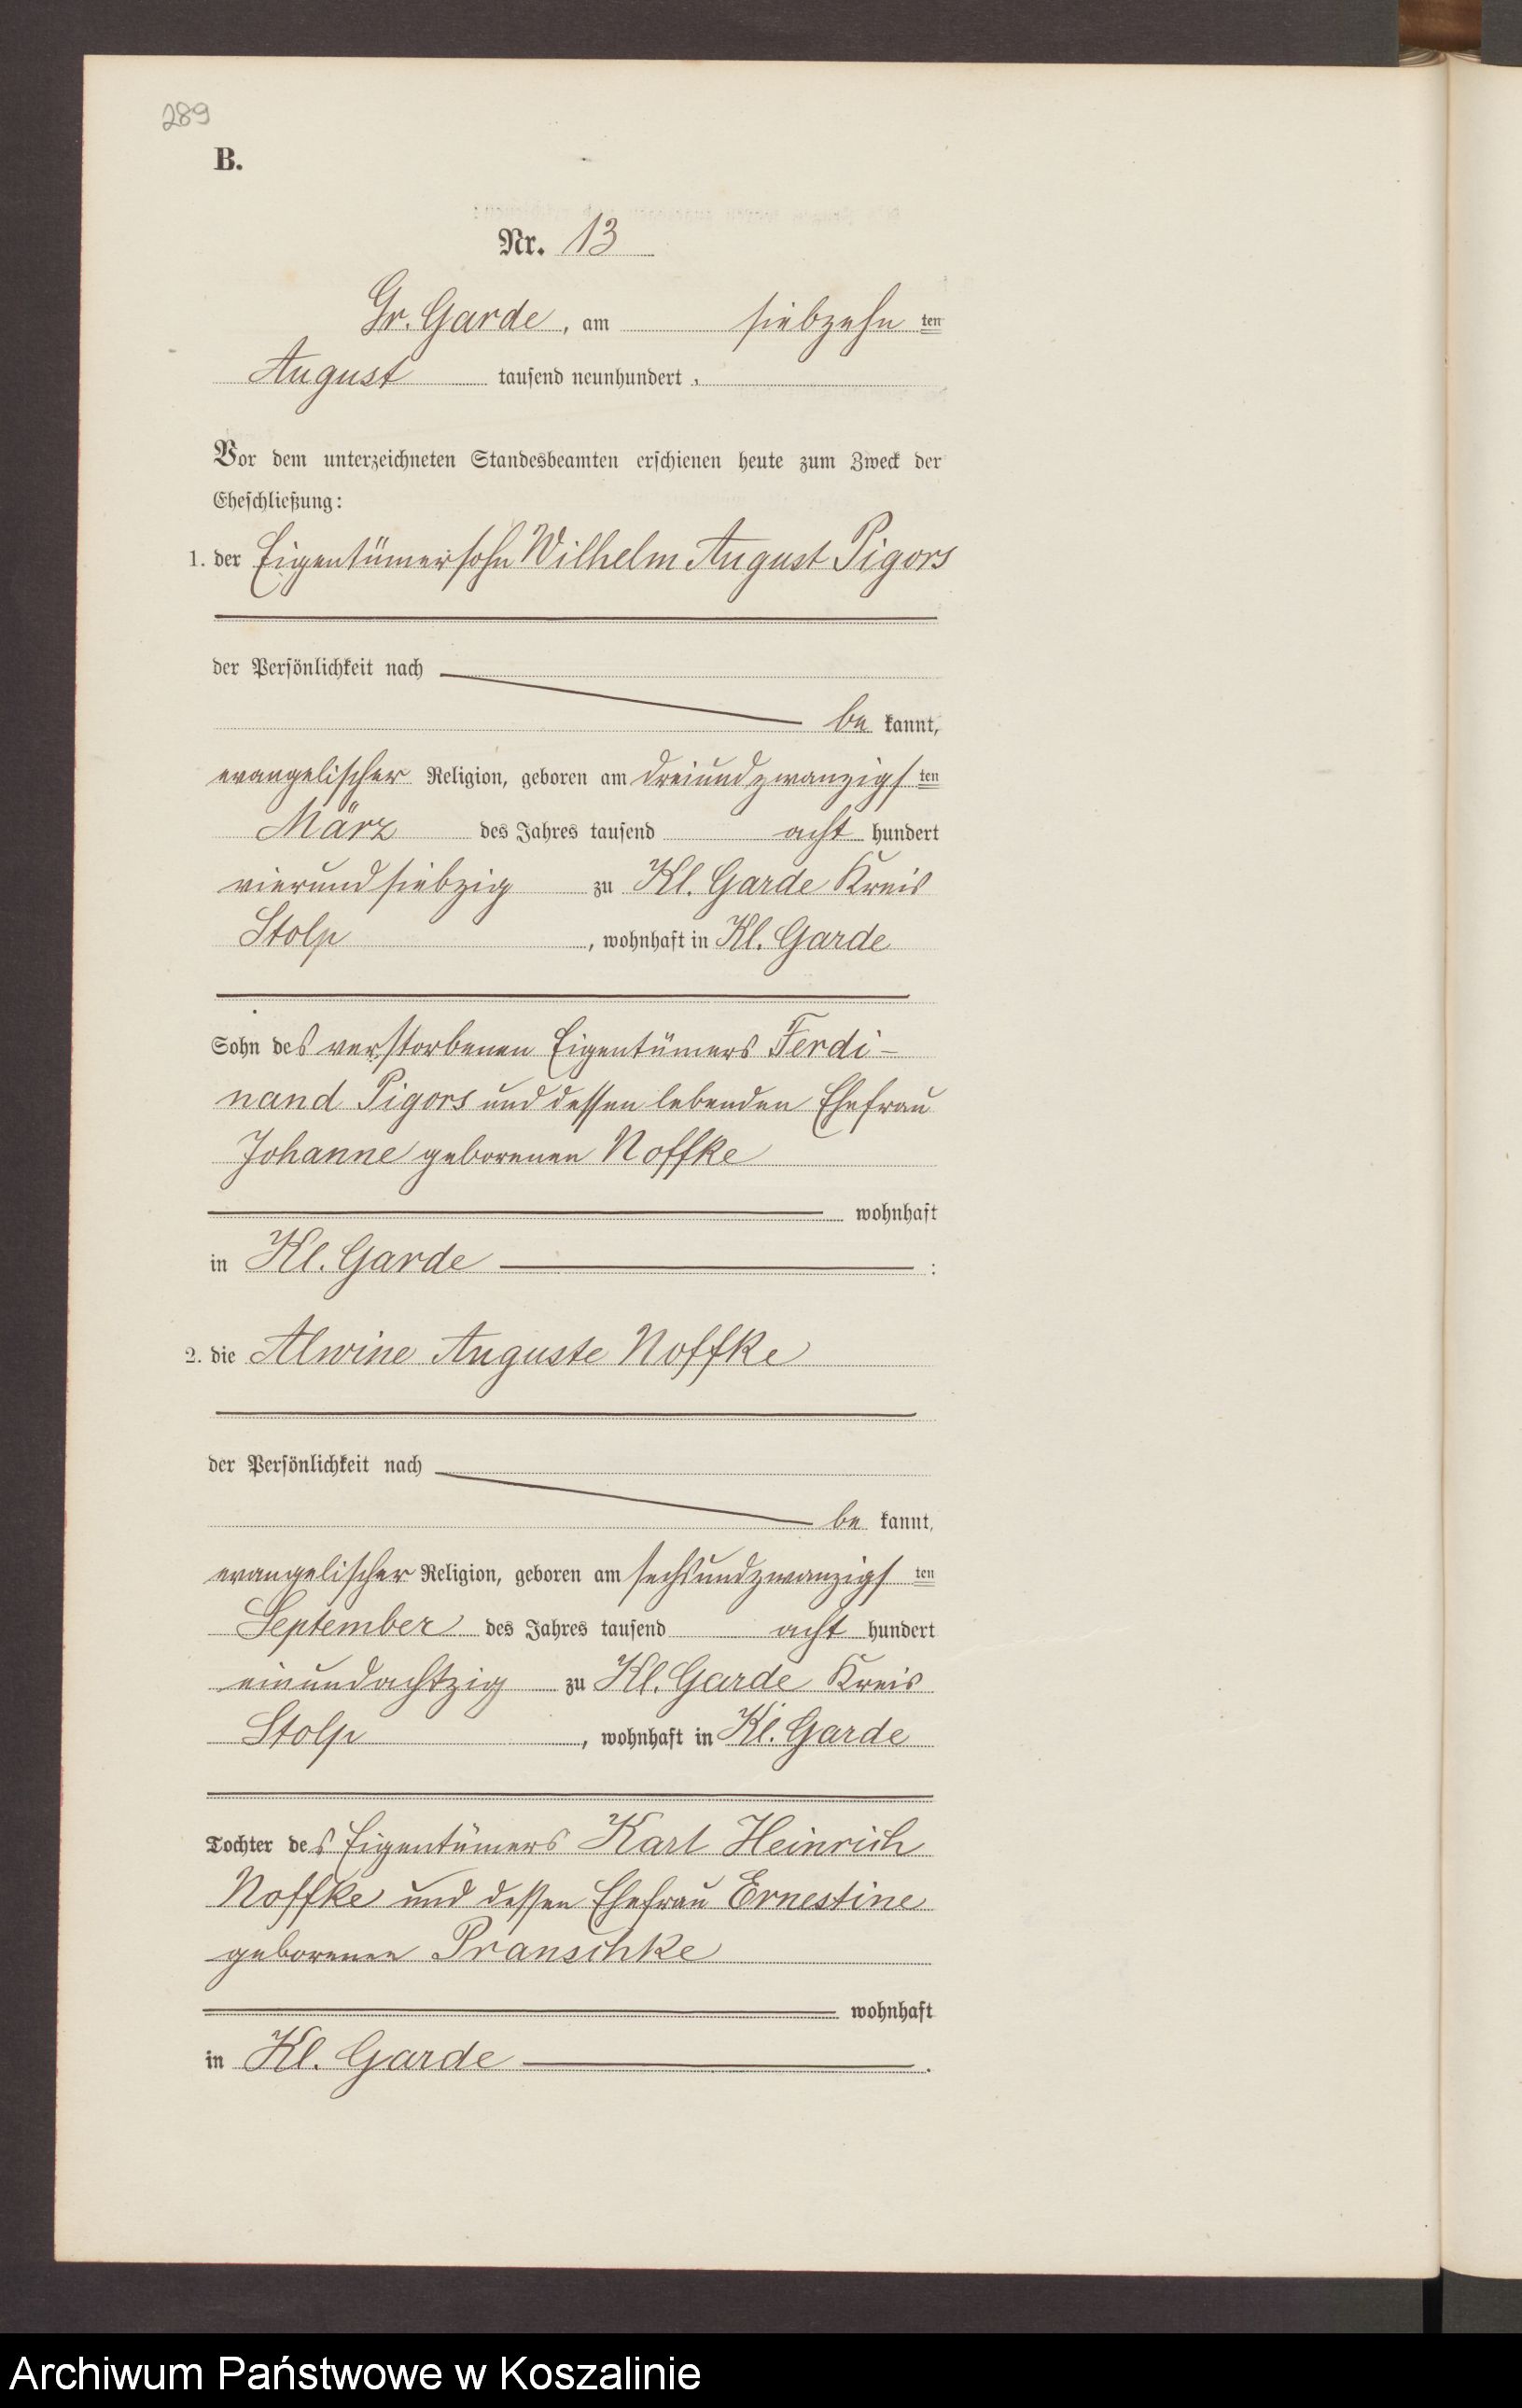 289
B.
Nr. 13
Gr. Garde, am siebzehn ten
August tausend neunhundert .
Vor dem unterzeichneten Standesbeamten erschienen heute zum Zweck der
Eheschließung:
1. der Eigentümersohn Wilhelm August Pigors
der Persönlichkeit nach
be kannt,
evangelischer Religion, geboren am dreiundzwanzigs ten
März des Jahres tausend acht hundert
vierundsiebzig zu Kl. Garde Kreis
Stolp , wohnhaft in Kl. Garde
Sohn des verstorbenen Eigentümers Ferdi-
nand Pigors und dessen lebenden Ehefrau
Johanne geborenen Noffke
wohnhaft
in Kl. Garde :
2. die Alwine Auguste Noffke
der Persönlichkeit nach
be kannt,
evangelischer Religion, geboren am sechsundzwanzigs ten
September des Jahres tausend acht hundert
einundachtzig zu Kl. Garde Kreis
Stolp , wohnhaft in Kl. Garde
Tochter des Eigentümers Karl Heinrich
Noffke und dessen Ehefrau Ernestine
geborenen Pranschke
wohnhaft
in Kl. Garde .
Archiwum Państwowe w Koszalinie